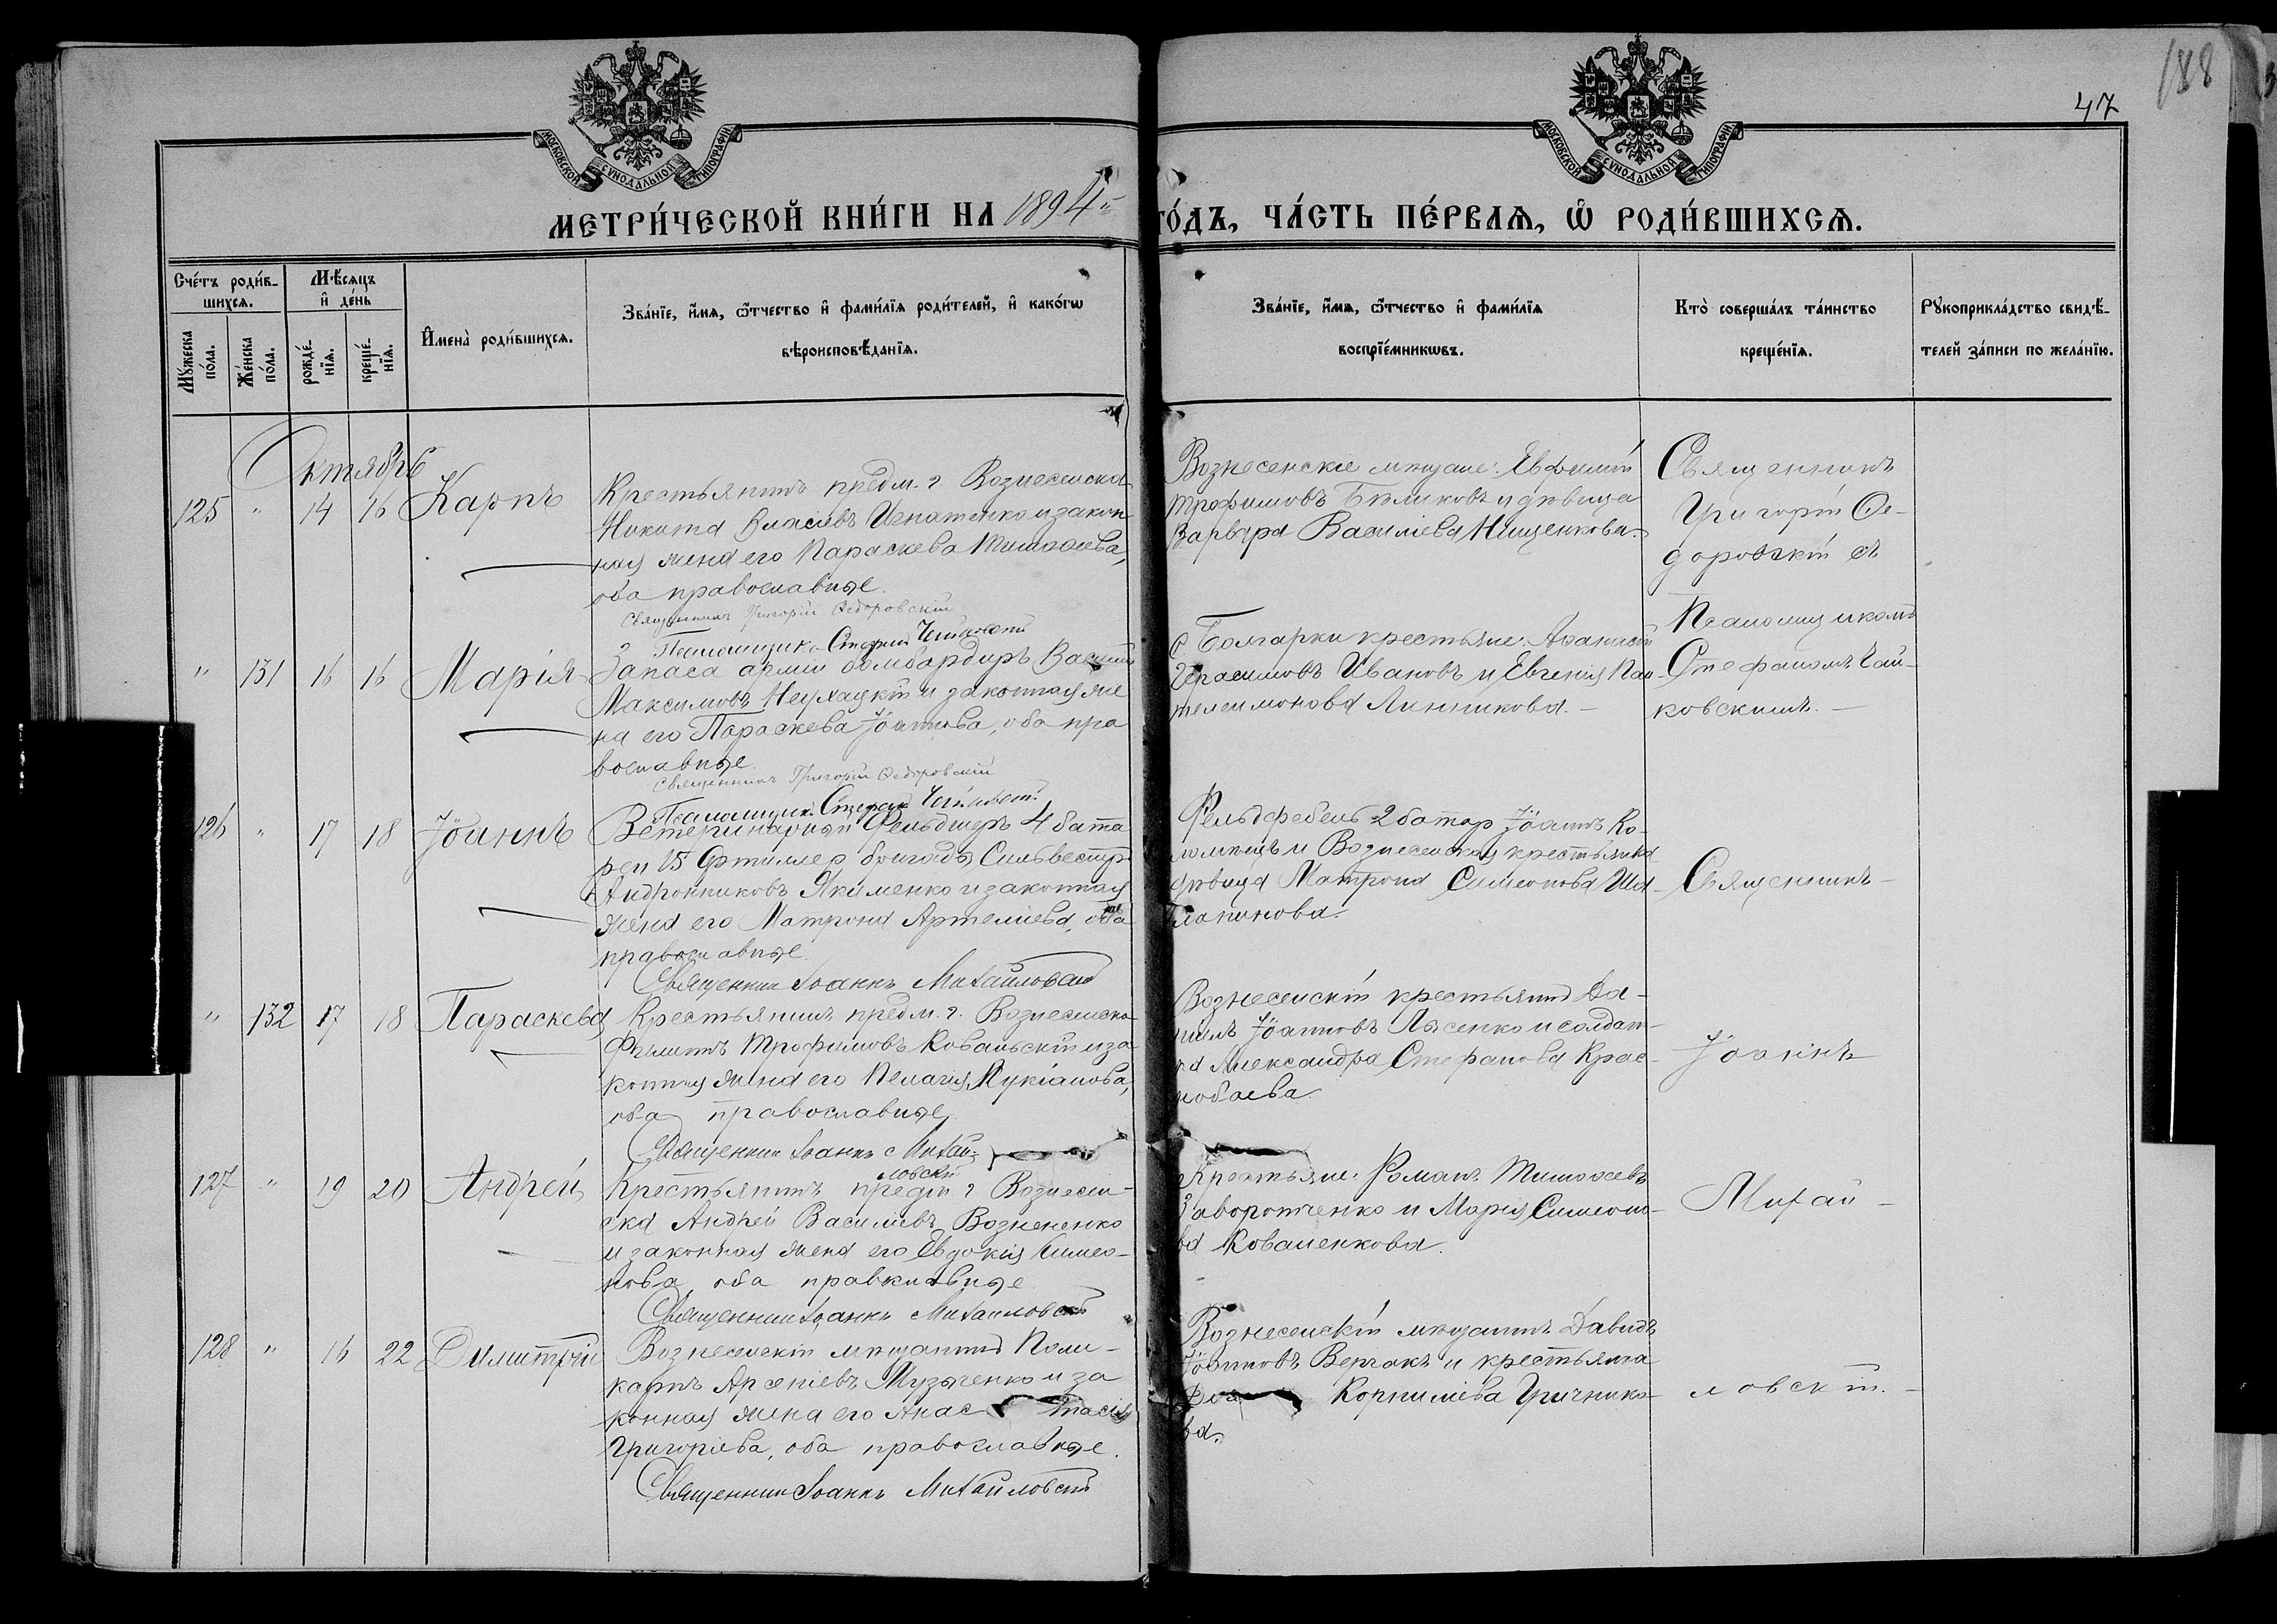 188
47
МОСКОВСКОЙ СѴНОДАЛЬНОЙ ТИПОГРАФІИ
МОСКОВСКОЙ СѴНОДАЛЬНОЙ ТИПОГРАФІИ
МЕТРИ́ЧЕСКОЙ КНИ́ГИ НА 1894 ГО́ДЪ, ЧА́СТЬ ПЕ́РВАѦ, Ѡ҆ РОДИ́ВШИХСѦ.
Сче́тъ роди́в-
шихсѧ.
Мꙋ́жеска по́ла.
Же́нска по́ла.
Мѣ́сѧцъ
и҆ де́нь
рожде́-
нїѧ.
креще́-
нїѧ.
И҆мена̀ роди́вшихсѧ.
Зва́нїе, и҆́мѧ, ѻ҆́тчество и҆ фами́лїѧ роди́телей, и҆ како́гѡ
вѣроисповѣ́данїѧ.
Зва́нїе, и҆́мѧ, ѻ҆́тчество и҆ фами́лїѧ
воспрїе́мникѡвъ.
Кто̀ соверша́лъ та́инство
креще́нїѧ.
Рꙋкоприкла́дство свидѣ́-
телей за́писи по жела́нїю.
Октябрь
125 " 14 16 Карпъ
Крестьянинъ предм. г. Вознесенска
Никита Власіевъ Игнатенко и закон
ная жена его Параскева Тимоѳеева,
оба православные.
Священникъ Григорій Ѳедоровскій
Псаломщик Стефанъ Чайковскій
Вознесенскіе мѣщане: Евфимій
Трофимовъ Бѣликовъ и дѣвица
Варвара Василіева Нищенкова.
Священникъ
Григорій Ѳе-
доровскій съ
Псаломщикомъ
Стефаномъ Чай-
ковскимъ.
" 131 16 16 Марія
Запаса арміи бомбардиръ Василій
Максимовъ и законная же
на его Параскева Іоаннова, оба пра
вославные.
Священникъ Григорій Ѳедоровскій
Псаломщик Стефанъ Чайковскій
с Болгарки крестьяне: Аѳанасій
Герасимовъ Ивановъ и Евгенія Пан-
телеимонова Линникова.
126 " 17 18 Іоаннъ
Ветеринарный Фельдшеръ 4 бата
реи 15 Артиллер бригады Сильвестръ
Андрониковъ Якименко и законная
жена его Матрона Артеміева, оба
православные.
Священник Іоаннъ Михайловскій
Фельдфебель 2 батар Іоаннъ Ко-
ломѣецъ и Вознесенская крестьянка
дѣвица Матрона Симеонова Ша-
лапинова.
Священникъ
" 132 17 18 Параскева
Крестьянинъ предм. г. Вознесенска
Филиппъ Трофимовъ Ковальскій и за
конная жена его Пелагія Лукіанова,
оба православные.
Священник Іоаннъ Михай-
ловскій
Вознесенскій крестьянинъ Да-
ніилъ Іоанновъ Лысенко и солдат-
ка Александра Стефанова Крас-
нобаева
Іоаннъ
127 " 19 20 Андрей
Крестьянинъ предм г Вознесен-
ска Андрей Василіевъ Вознененко
и законная жена его Евдокія Симео-
нова оба православные
Священник Іоаннъ Михайловскій
Крестьяне: Романъ Тимоѳеевъ
Заворотченко и Марія Симеоно-
ва Коваленкова.
Михай-
128 " 16 22 Димитрій
Вознесенскій мѣщанинъ Поли-
карпъ Арсеніевъ Музыченко и за
конная жена его Анас тасія
Григоріева, оба православные.
Священник Іоаннъ Михайловскій
Вознесенскій мѣщанинъ Давидъ
Іоанновъ Верчакъ и крестьянка
Корнилiева Гричнико-
ва.
ловскій.